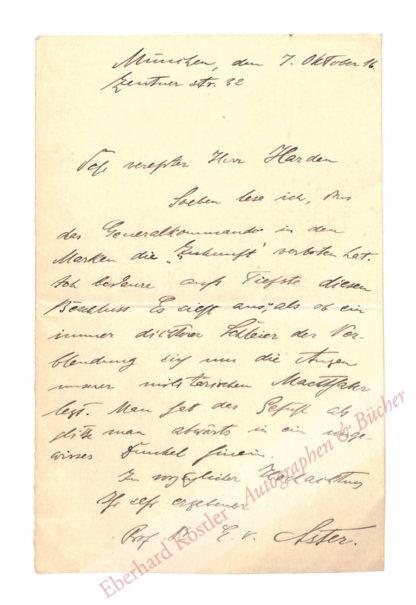 München, den 7. Oktober 16
Zentner str. 32
Sehr verehrter Herr Harden
Soeben lese ich, dass
das Generalkommando in den
Marken die „Zukunft" verboten hat.
Ich bedaure aufs Tiefste diesen
Beschluss. Es sieht aus, als ob ein
immer dichterer Schleier der Ver-
blendung sich um die Augen
unserer militärischen Machthaber
legt. Man hat das Gefühl als
glitte man abwärts in ein unge-
wisses Dunkel hinein.
In vorzüglicher Hochachtung
Ihr sehr ergebener
Prof. Dr. E. v. Aster.
Eberhard Köstler Autographen & Bücher